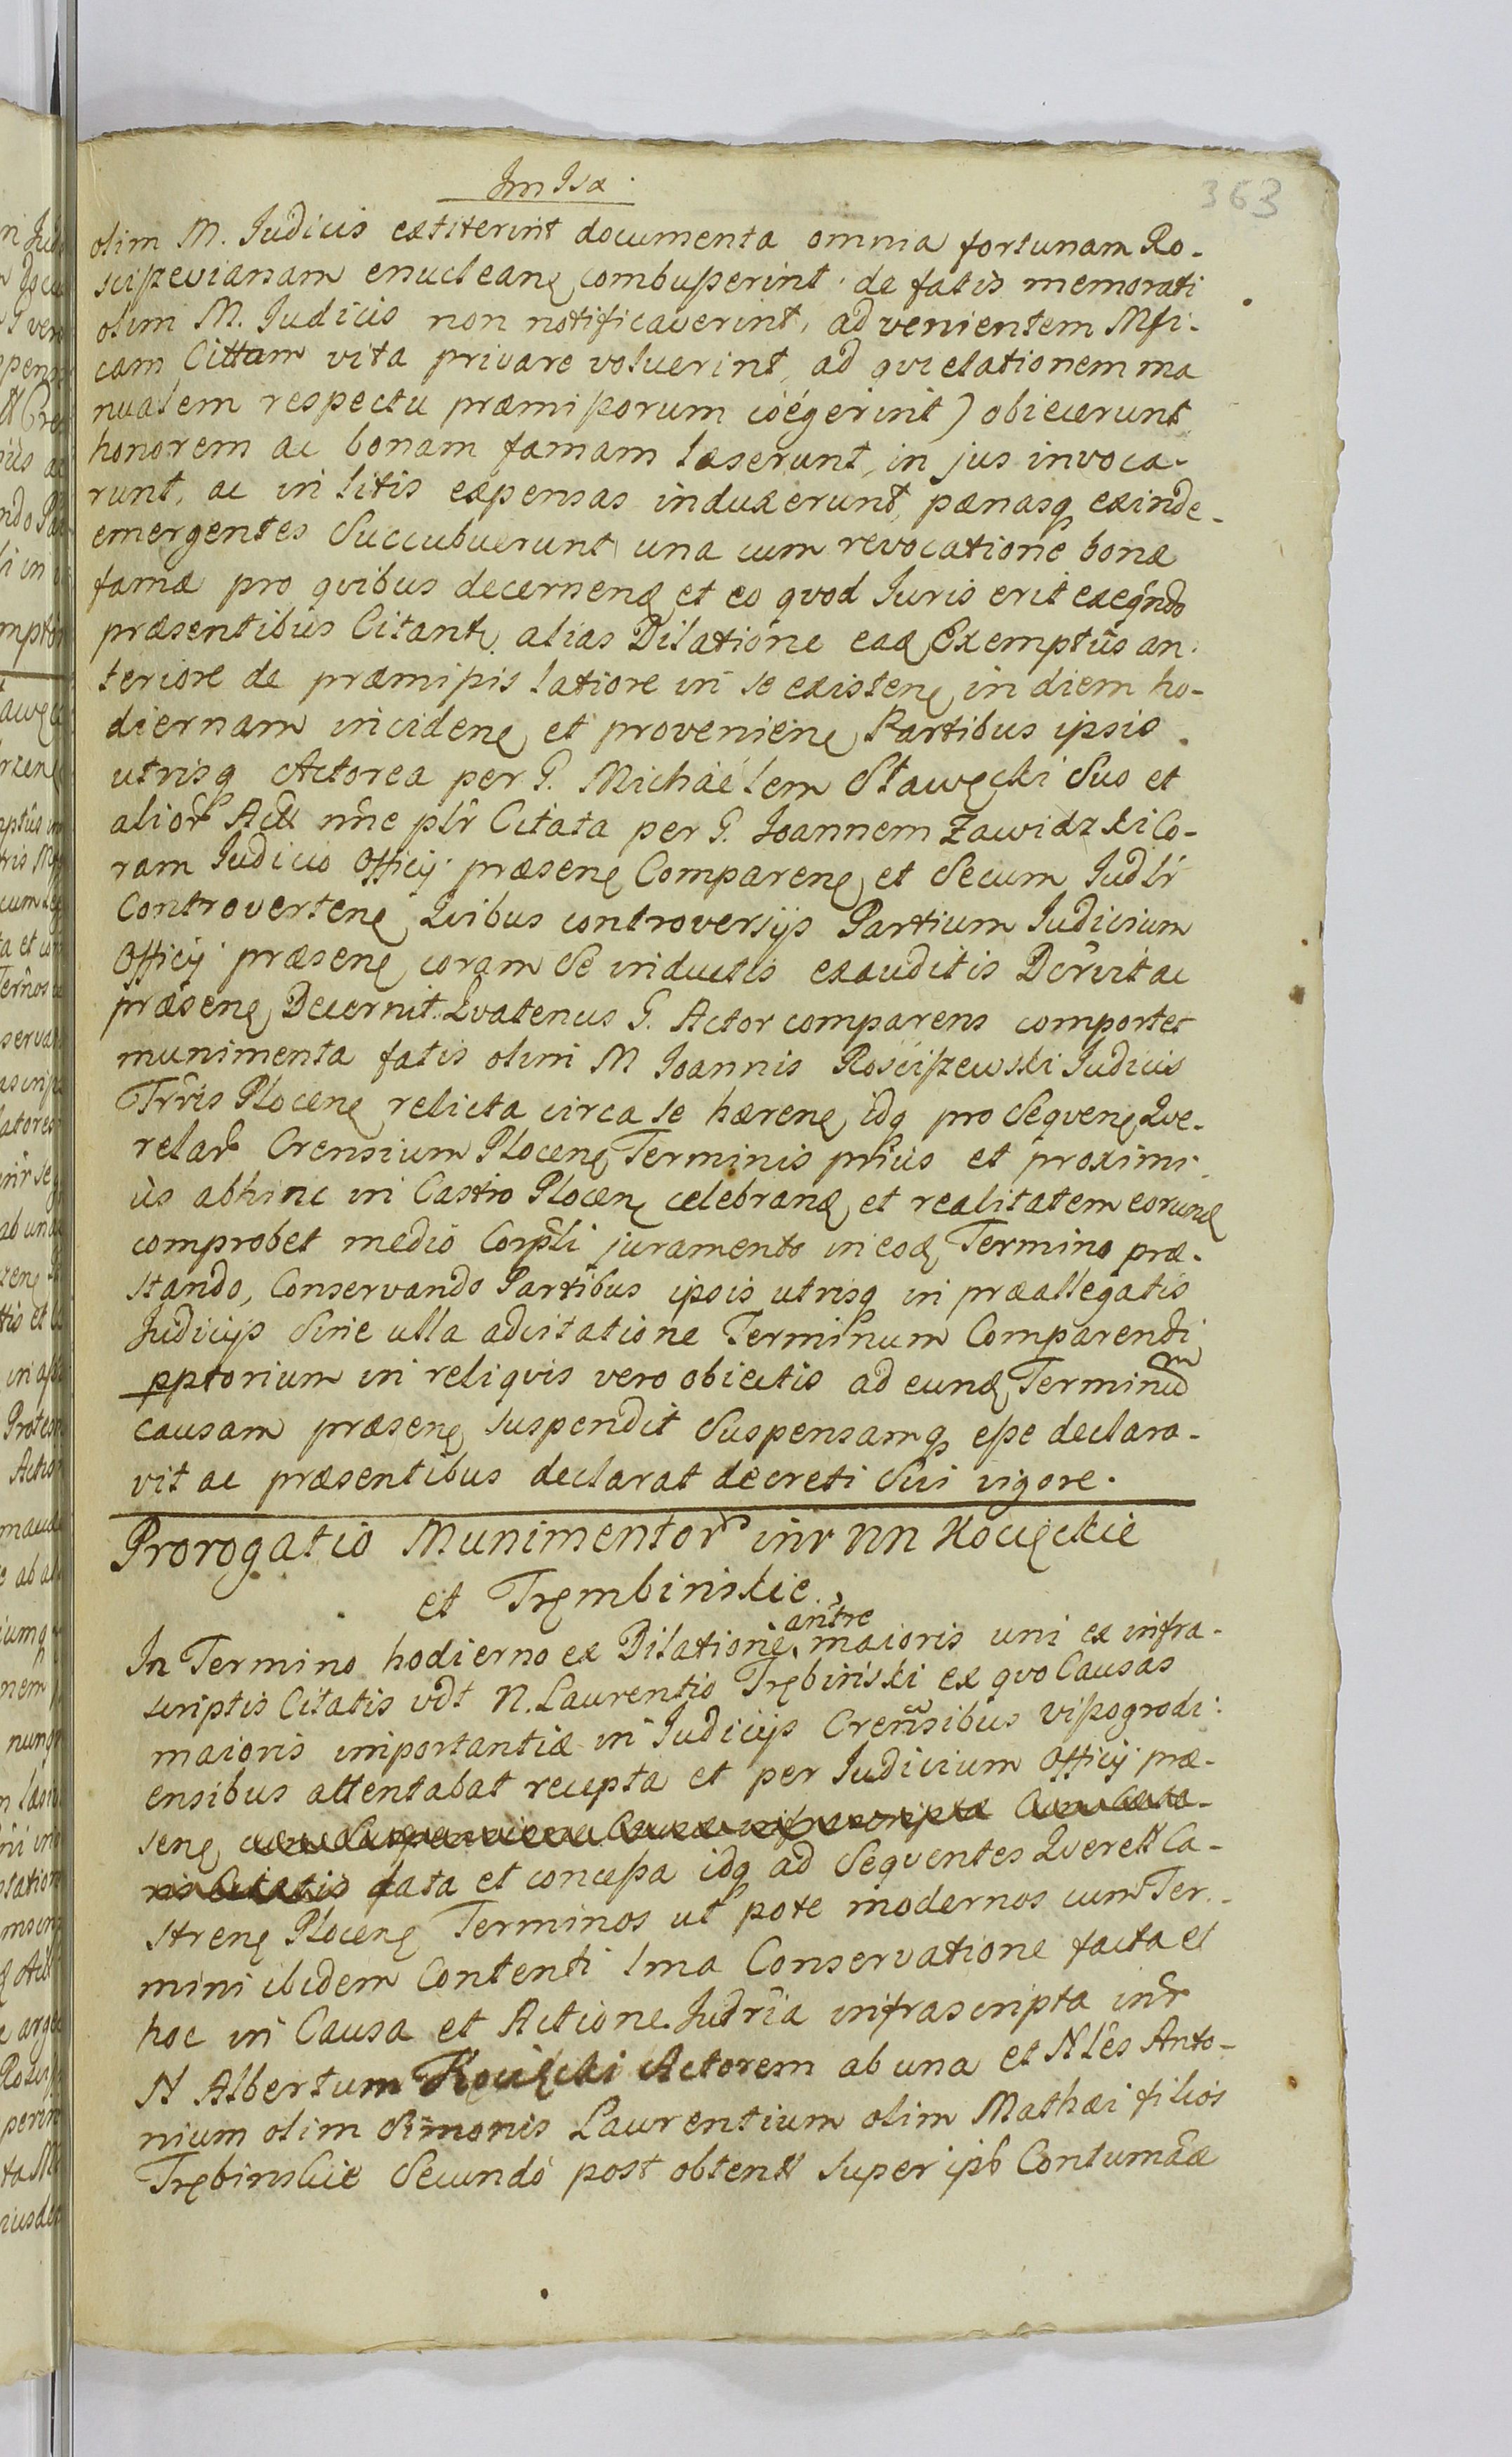 363
olim M. Iudicis extiterint documenta omnia fortunam Ro-
sciszevianam enuclean combusserint de fatis memorati
olim M. Iudicis non notificaverint, advenientem Mfi-
cam Cittam vita privare voluerint, ad qvietationem ma
nualem respectu præmissorum coégerint) obiecerunt
honorem ac bonam famam læserunt, in jus invoca-
runt, ac in litis expensas induxerunt, pænasq exinde-
emergentes Succubuerunt una cum revocatione bonæ
famæ pro qvibus decernend et eo qvod Iuris erit exeqndo
præsentibus Citant, alias Dilatione ead Exemptus an-
teriore de præmissis latiore in se existen in diem ho-
diernam inciden et provenien Partibus ipsis
utrisq Actorea per G. Michaélem Sławęcki Suo et
alior Act nne plr Citata per G. Ioannem Zawidzki Co-
ram Iudicio Officij præsen Comparen et Secum Iudlr
Controverten Qvibus controversijs Partium Iudicium
Officij præsen coram Se inductis exauditis Dcrvit ac
præsen Decernit. Qvatenus G. Actor comparens comportet
munimenta fatis olim M Ioannis Rosciszewski Iudicis
Trris Plocen relicta circa se hæren idq pro Seqven Qve-
relar Crensium Plocen Terminis prius et proximi-
us abhinc in Castro Plocen celebrand et realitatem eorund
comprobet medio Corpli juramento in eod Termino præ-
stando, Conservando Partibus ipsis utrisq in præallegatis
Iudicijs Sine ulla adcitatione Terminum Comparendi
pptorium in reliqvis vero obiectis ad eund Terminum
causam præsen suspendit Suspensamq esse declara-
vit ac præsentibus declarat decreti Sui vigore.
Prorogatio Munimentor inr NN Kocięckie
et Trembinskie.
antre
In Termino hodierno ex Dilatione maioris uni ex infra-
scriptis Citatis vdt N. Laurentio Trębinski ex qvo Causas
maioris importantiæ in Iudicijs Crensibus vissogrodi-
ensibus attentabat recepta et per Iudicium Officij præ-
sen
data et concessa idq ad Seqventes Qverell Ca-
stren Plocen Terminos ut pote modernos cum Ter-
mini ibidem Contenti lma Conservatione facta et
hoc in Causa et Actione Judria infrascripta inr
N Albertum Kocięcki Actorem ab una et Nles Anto-
nium olim Simonis Laurentium olim Mathæi filios
Trębinskie Secundo post obtent super ips Contumaæ